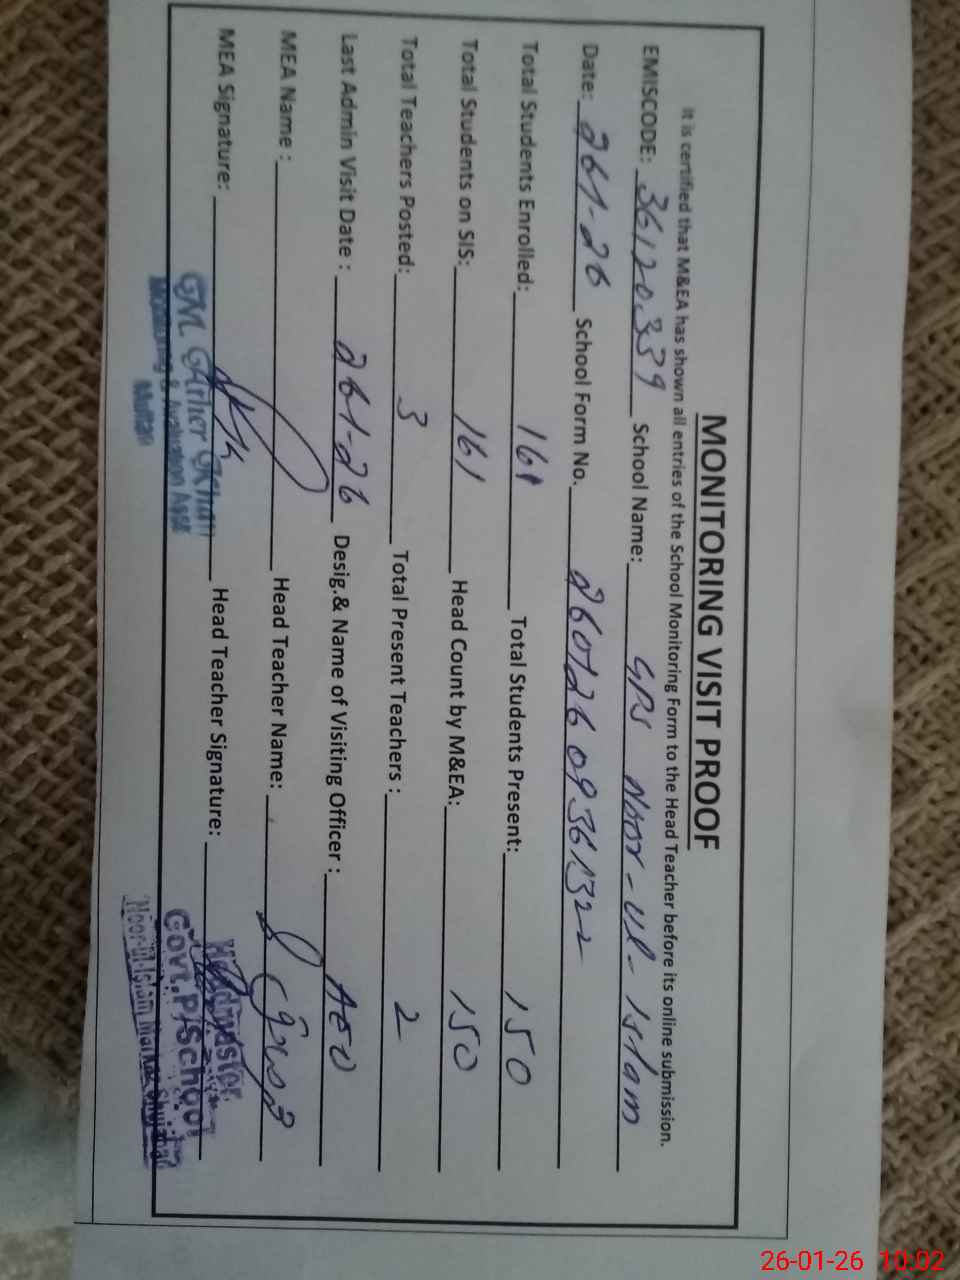 MONITORING VISIT PROOF
It is certified that M&EA has shown all entries of the School Monitoring Form to the Head Teacher before its online submission.
EMISCODE: 36120339 School Name: GPS Noor-ul-Islam
Date: 26-1-26 School Form No. 26012609361322
Total Students Enrolled: 161 Total Students Present: 150
Total Students on SIS: 161 Head Count by M&EA: 150
Total Teachers Posted: 3 Total Present Teachers : 2
Last Admin Visit Date : 26-1-26 Desig.& Name of Visiting Officer : AEO
MEA Name : Head Teacher Name:
MEA Signature: Head Teacher Signature:
GM. Khan
Monitoring & Evaluation
Multan
Headmaster
Govt. P/School
Noor-ul-Islam Markaz
26-01-26 10:02